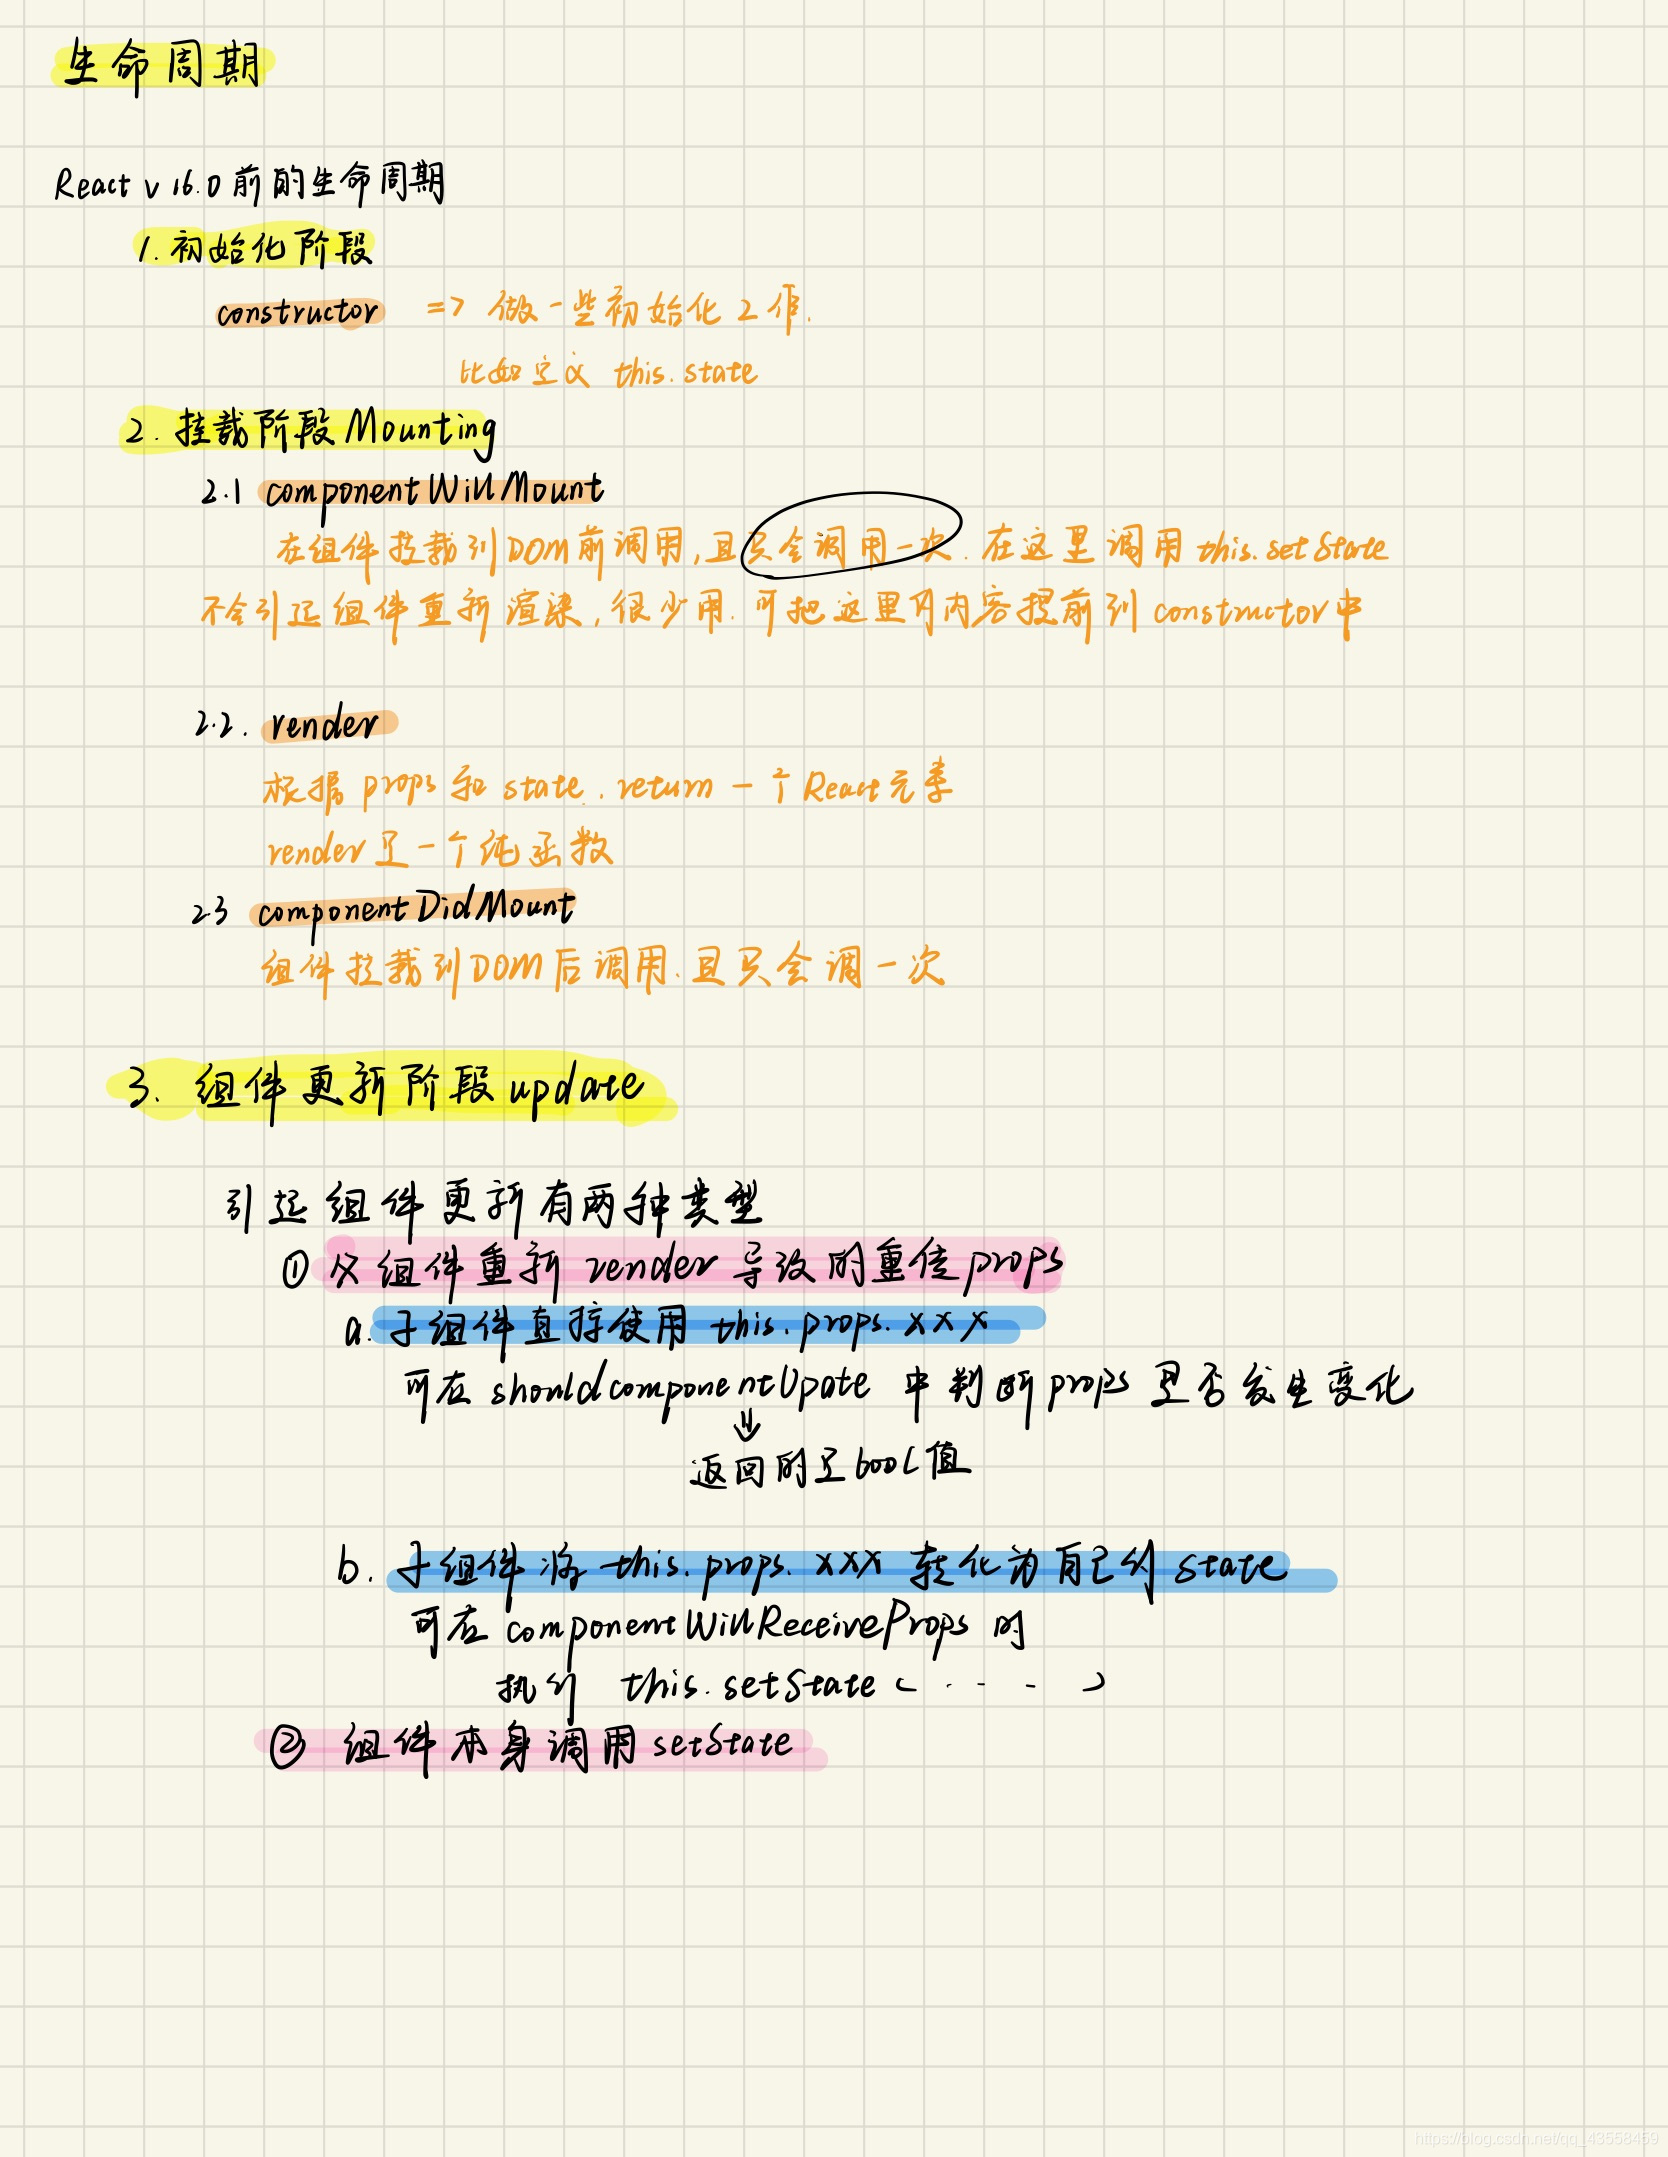 生命周期
React v 16.0 前的生命周期
1. 初始化阶段
constructor => 做一些初始化工作.
比如定义 this.state
2. 挂载阶段 Mounting
2.1 componentWillMount
在组件挂载到DOM前调用,且只会调用一次. 在这里调用 this.setState
不会引起组件重新渲染,很少用. 可把这里的内容提前到 constructor中
2.2. render
根据 props 和 state. return 一个React元素
render是一个纯函数
2.3 componentDidMount
组件挂载到DOM后调用.且只会调一次
3. 组件更新阶段 update
引起组件更新有两种类型
① 父组件重新 render 导致的重传 props
a. 子组件直接使用 this.props.xxx
可在 shouldcomponentUpate 中判断props 是否发生变化
⇓
返回的是 bool 值
b. 子组件将 this.props.xxx 转化为自己的 state
可在 componentWillReceiveProps 的
执行 this.setState ( - - - )
② 组件本身调用 setState
https://blog.csdn.net/qq_43558459